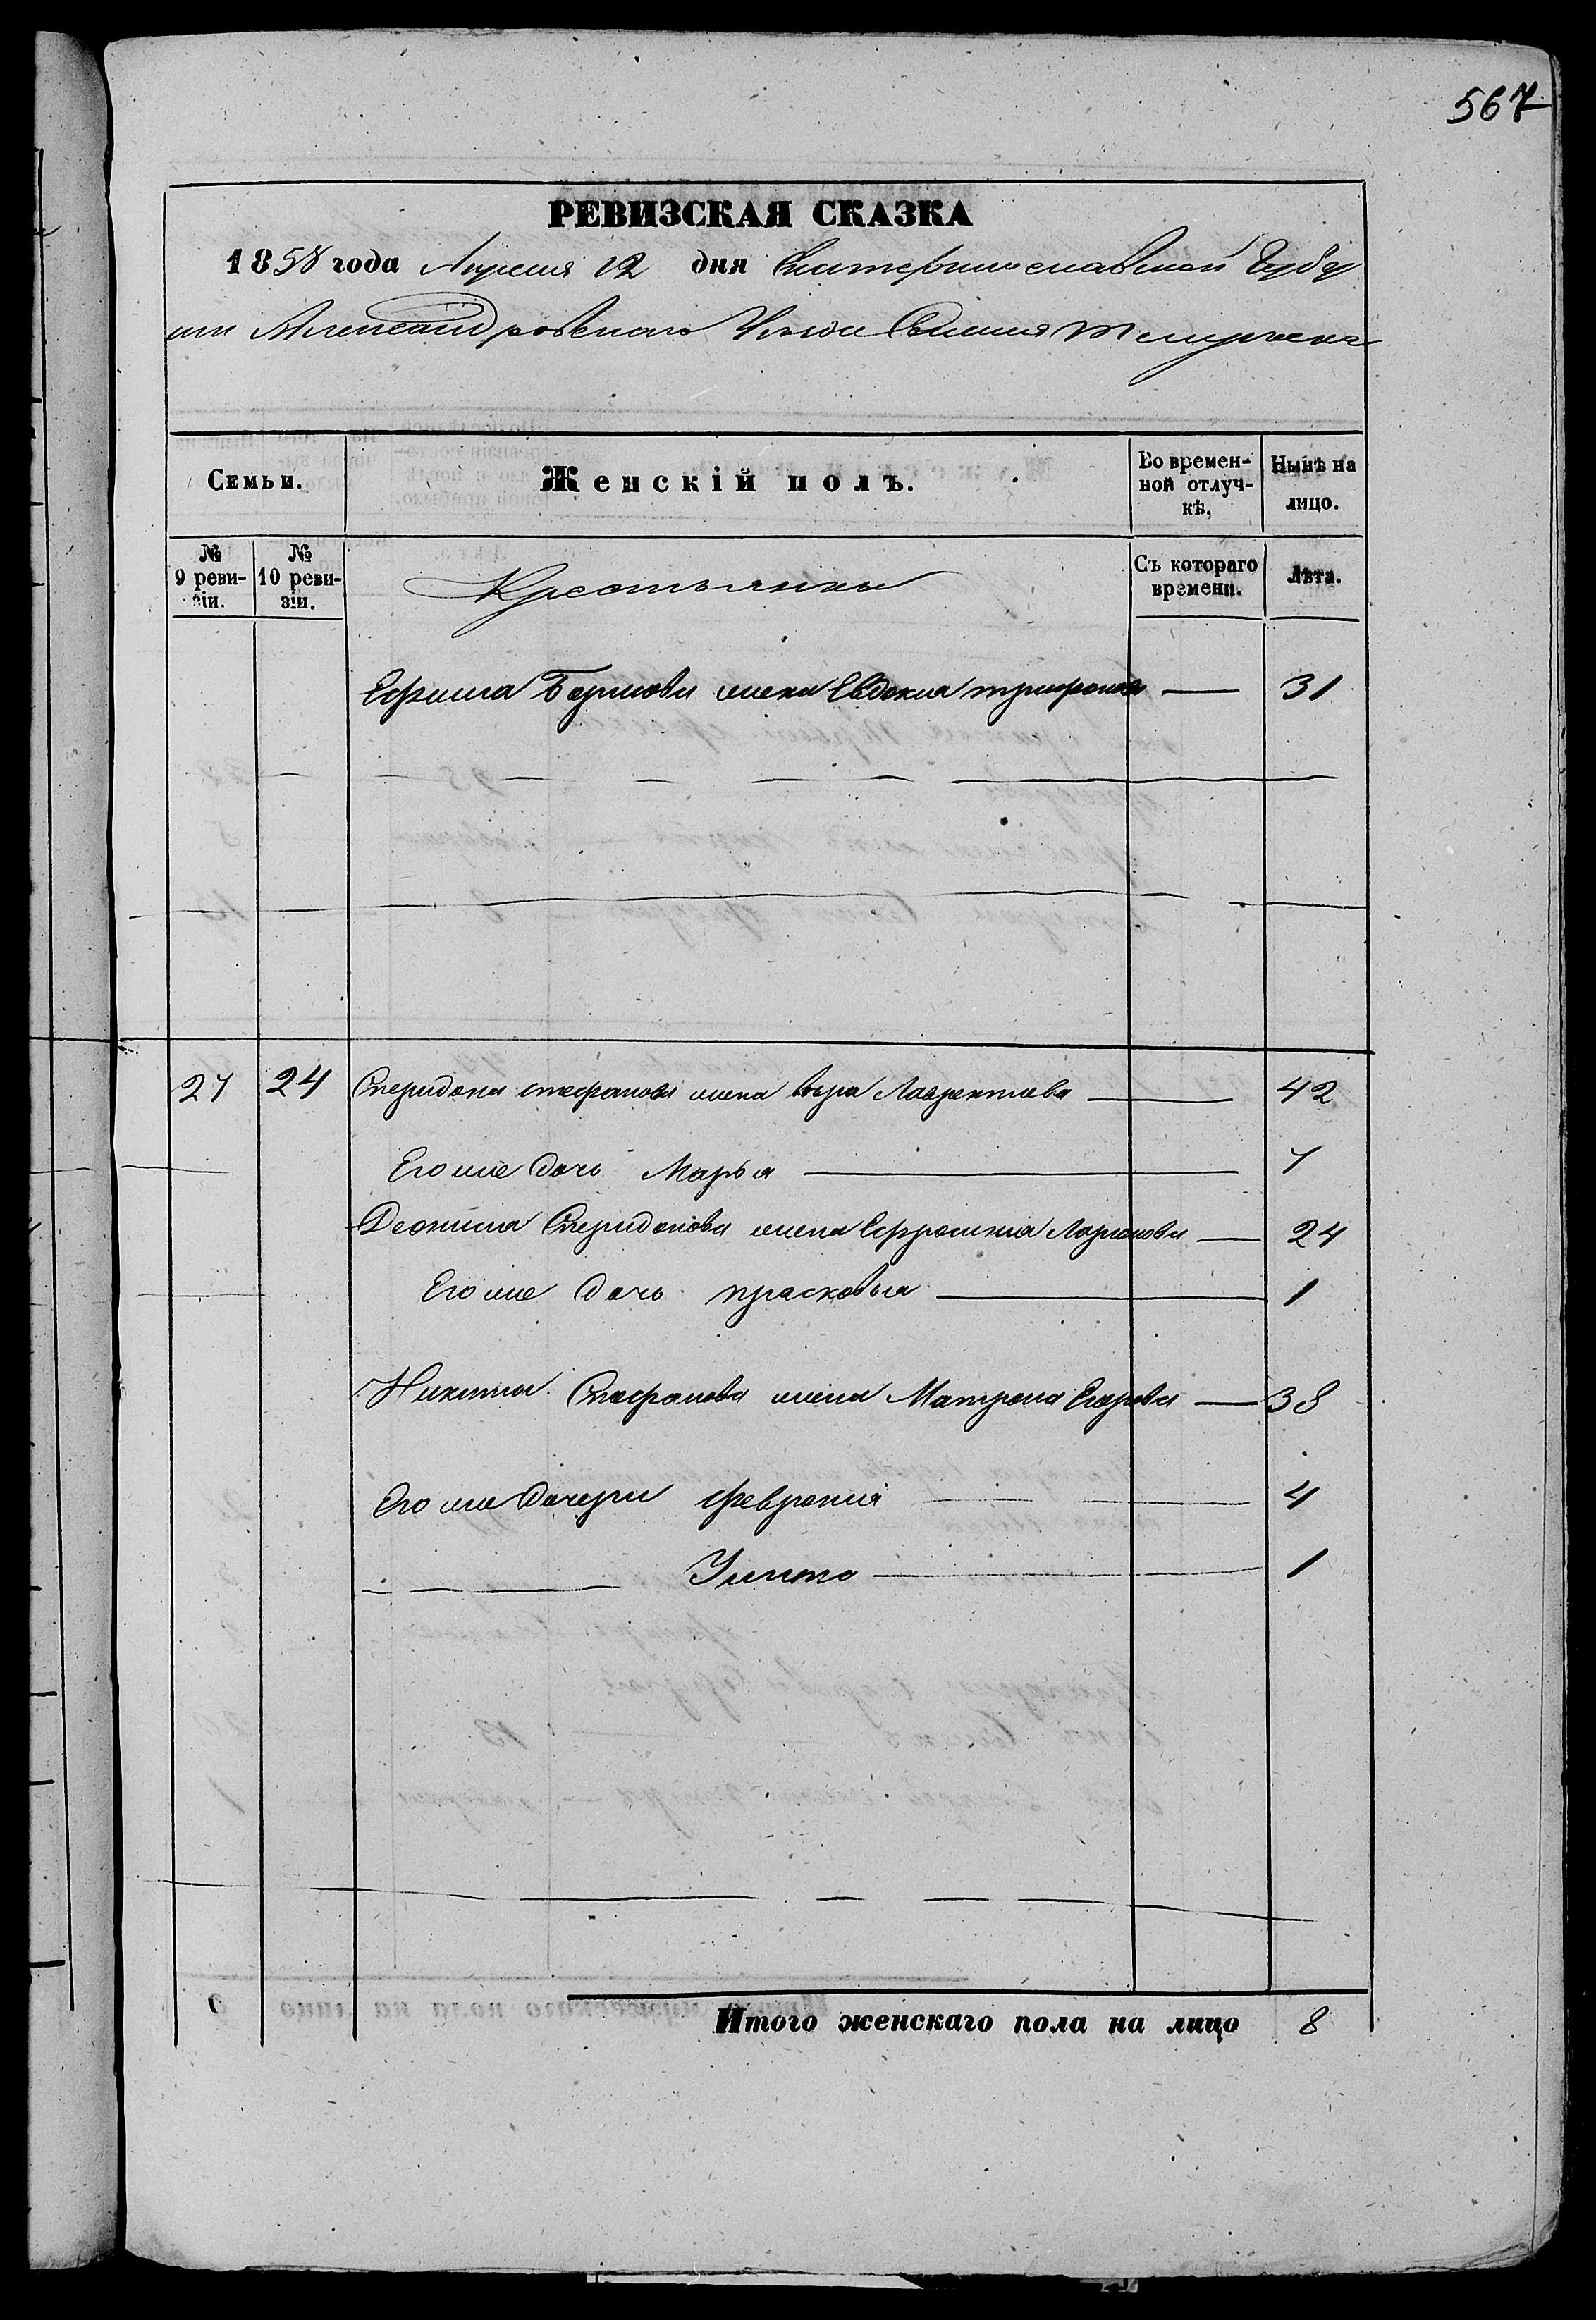 567
РЕВИЗСКАЯ СКАЗКА
1858 года Апреля 12 дня Екатеринославской Губер
нии Александровского Уезда Селения
Семьи.
Женскій полъ.
Во времен-
ной отлуч-
кѣ,
Нынѣ на
лицо.
№
9 реви-
зіи.
№
10 реви-
зіи.
Крестьянки
Съ котораго
времени.
Лѣта.
Ефима жена Евдокия трифонова 31
27 24 Спиридона стефанова жена вера Лаврентиева 42
Его же дочь Марья 7
Леонтия Спиридонова жена Ефросиния Ларионова 24
Его же дочь прасковья 1
Никиты Стефанова жена Матрона Егорова 38
Его же дочери феврония 4
Улита 1
Итого женскаго пола на лицо 8